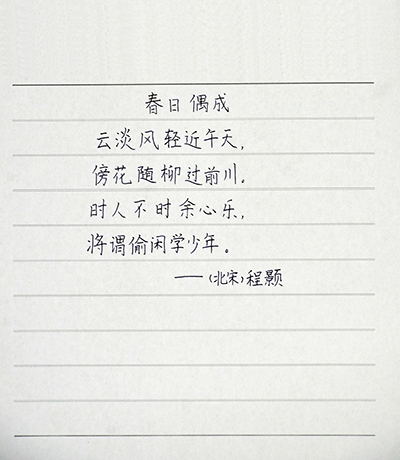 春日偶成
云淡风轻近午天,
傍花随柳过前川.
时人不时余心乐,
将谓偷闲学少年。
——(北宋)程颢